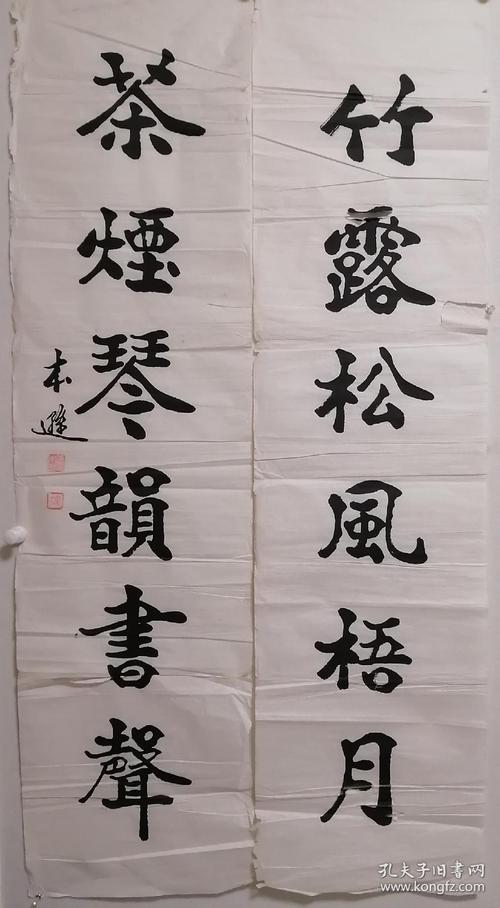 竹露松風梧月
茶煙琴韻書聲
孔夫子旧書网
www.kongfz.com